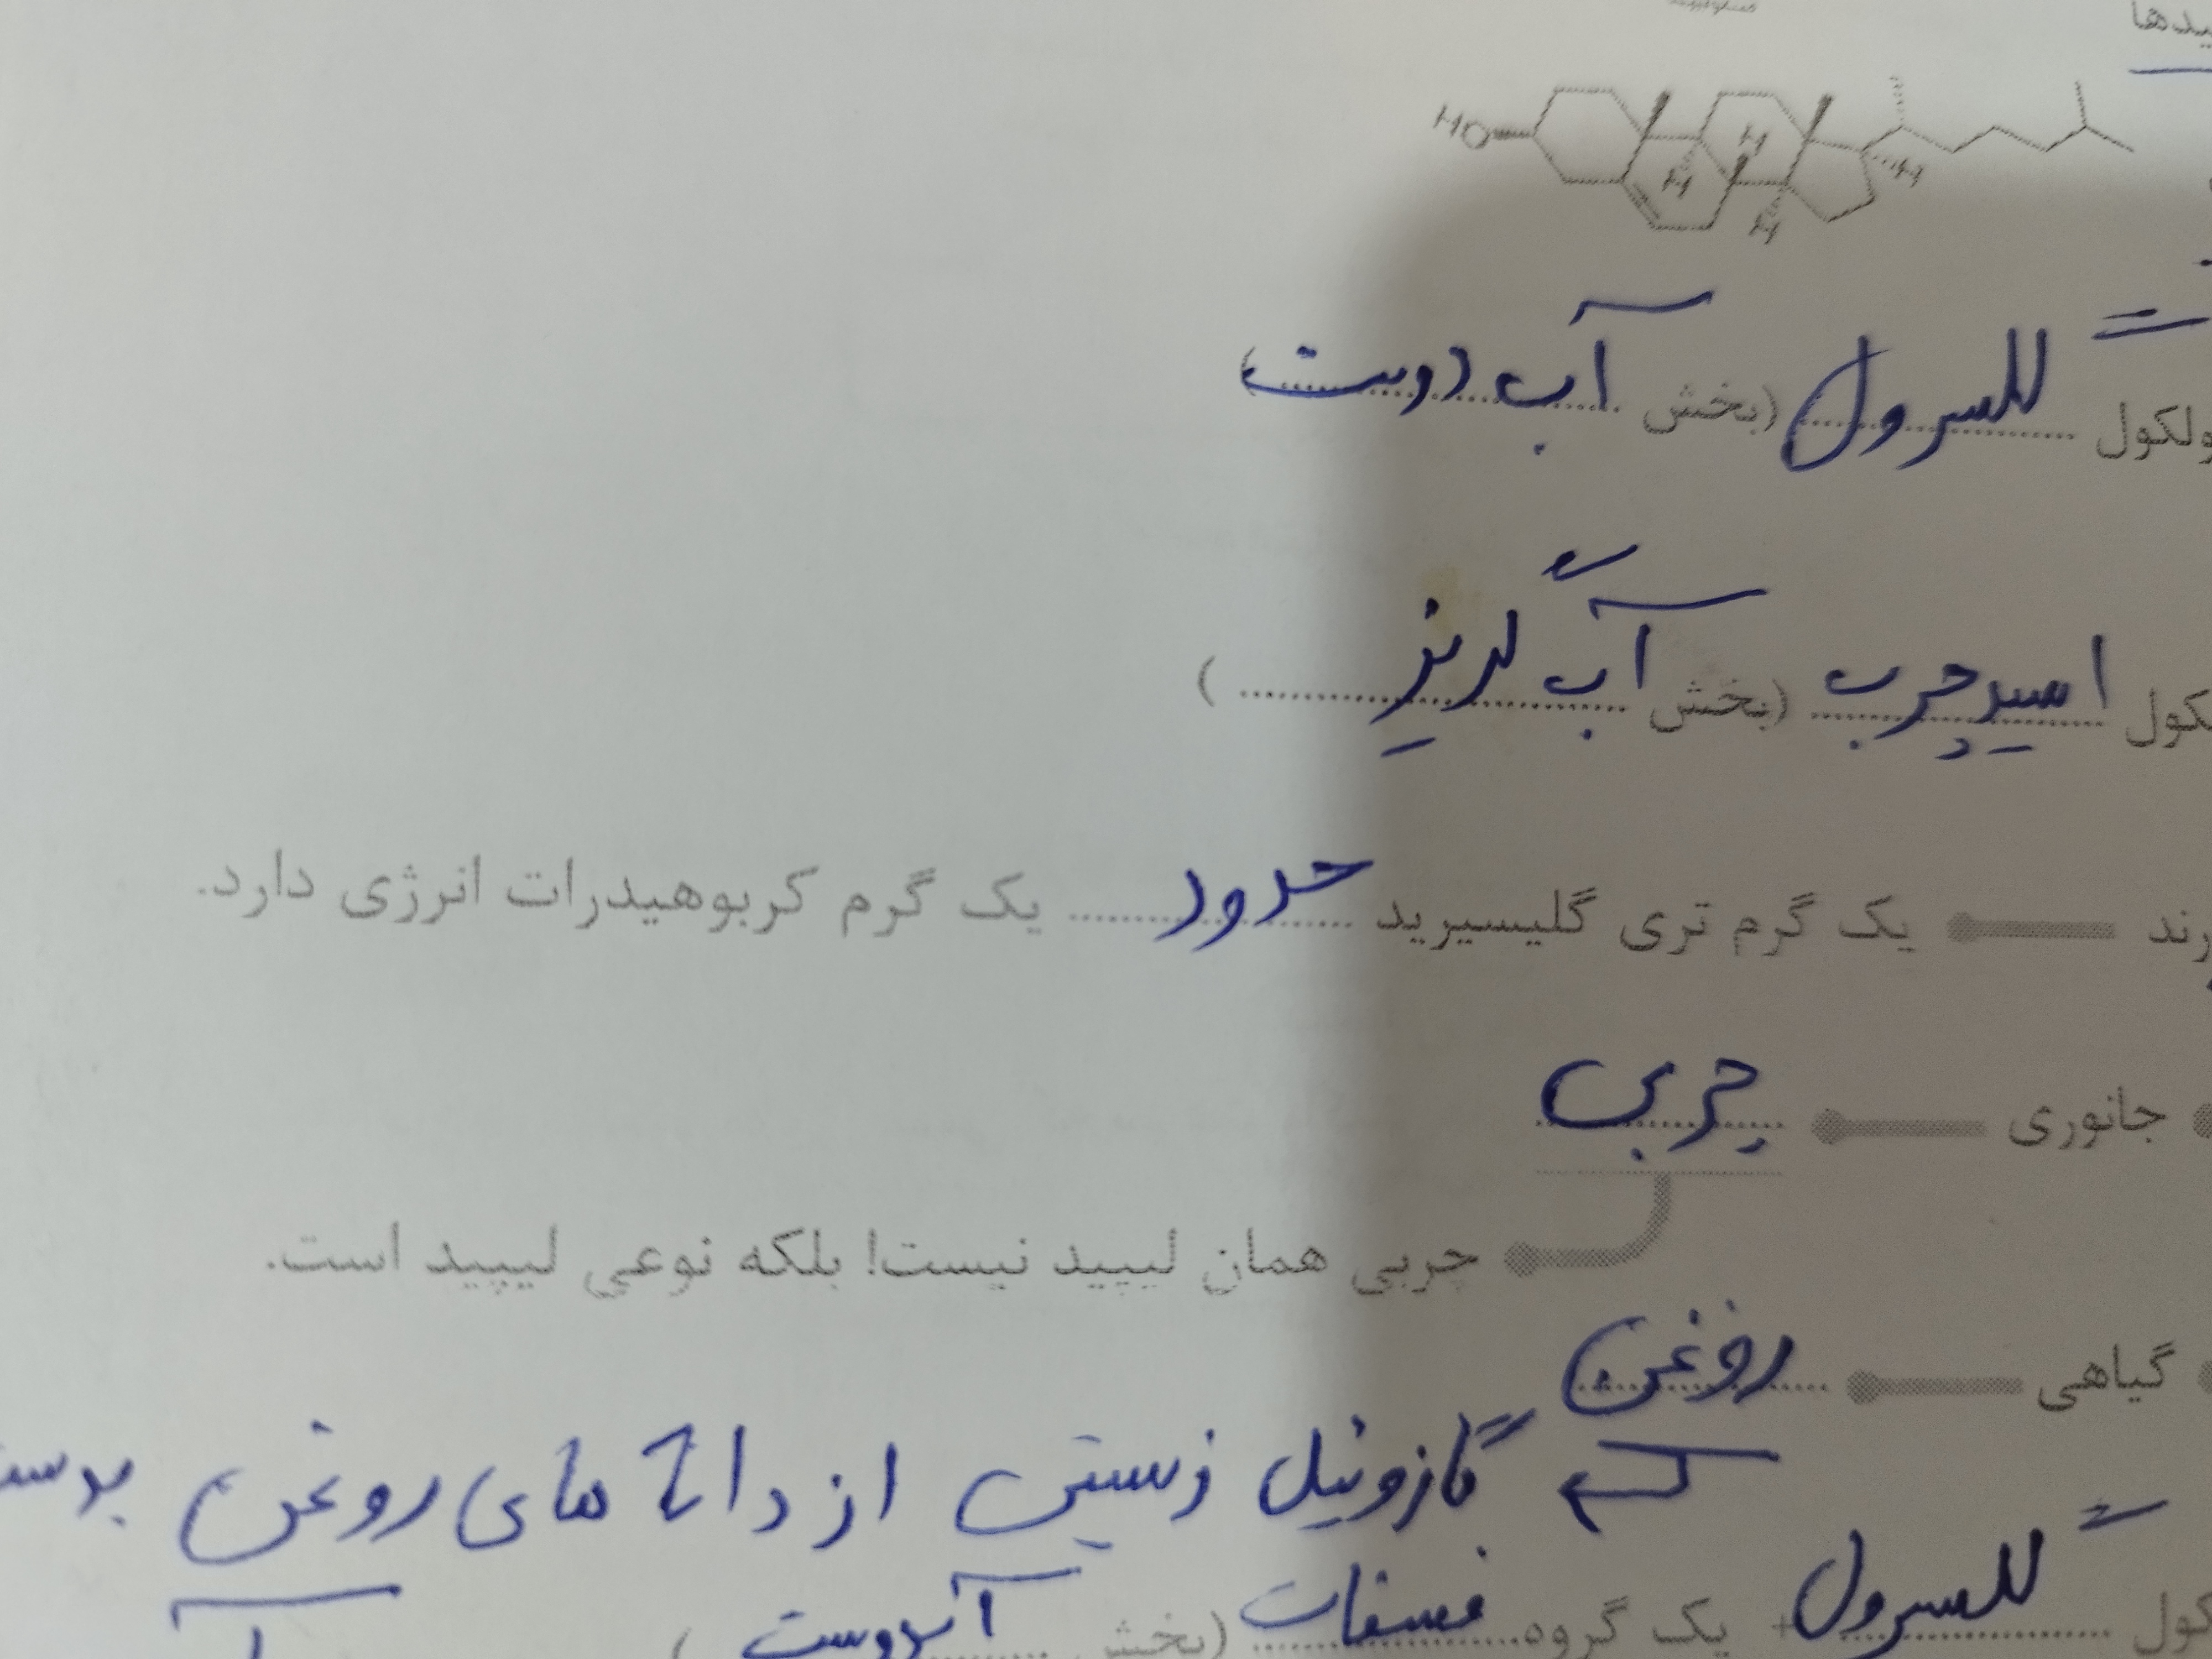 HO H H H H
ولکول گلسرول (بخش آب دوست)
کول اسیدچرب (بخش آب گریز )
رند یک گرم تری گلیسیرید حدود یک گرم کربوهیدرات انرژی دارد.
جانوری چربی
چربی همان لیپید نیست! بلکه نوعی لیپید است.
گیاهی روغن
گازوئیل زستی از دانه های روغنی بدست
کول گلسرول + یک گروه فسفات (بخش آبدوست )